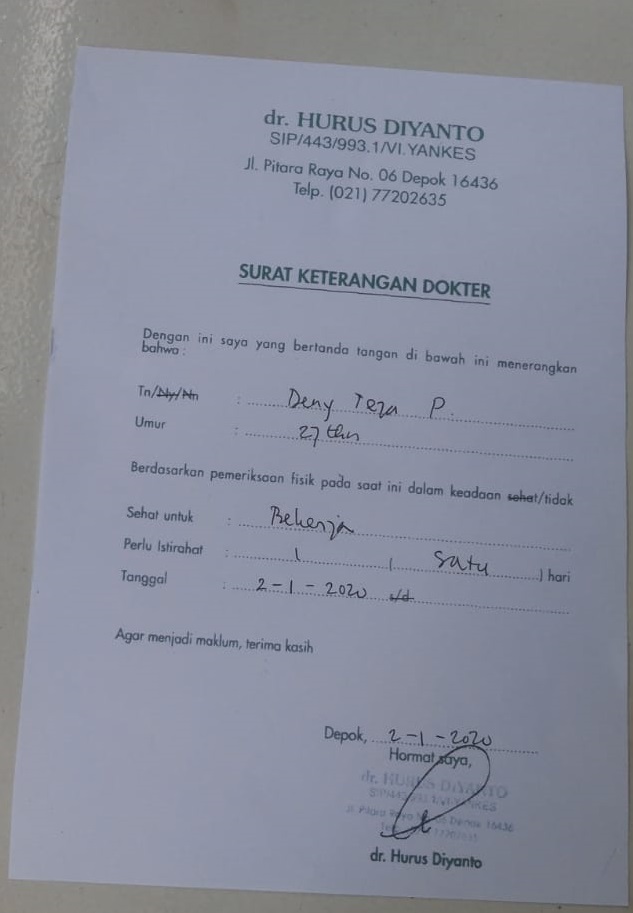 dr. HURUS DIYANTO
SIP/443/993.1/VI.YANKES
Jl. Pitara Raya No. 06 Depok 16436
Telp. (021) 77202635
SURAT KETERANGAN DOKTER
Dengan ini saya yang bertanda tangan di bawah ini menerangkan
bahwa :
Tn/Ny/Nn : Deny Teza P.
Umur : 27 thn
Berdasarkan pemeriksaan fisik pada saat ini dalam keadaan sehat/tidak
Sehat untuk : Bekerja
Perlu Istirahat : 1 ( Satu ) hari
Tanggal : 2-1-2020 s/d
Agar menjadi maklum, terima kasih
Depok, 2-1-2020
Hormat saya,
dr. HURUS DIYANTO
SIP/443/993.1/VI.YANKES
Jl. Pitara Raya No. 06 Depok 16436
dr. Hurus Diyanto